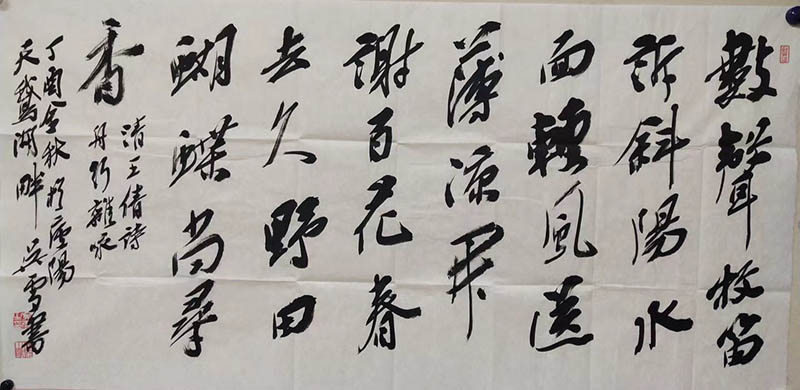 數聲牧笛
訴斜陽水
面輕風送
薄涼開
謝百花春
去久野田
蝴蝶尚尋
香
清王倩詩
舟行雜詠
丁酉金秋於廬陽
天鵝湖畔 吳雪書